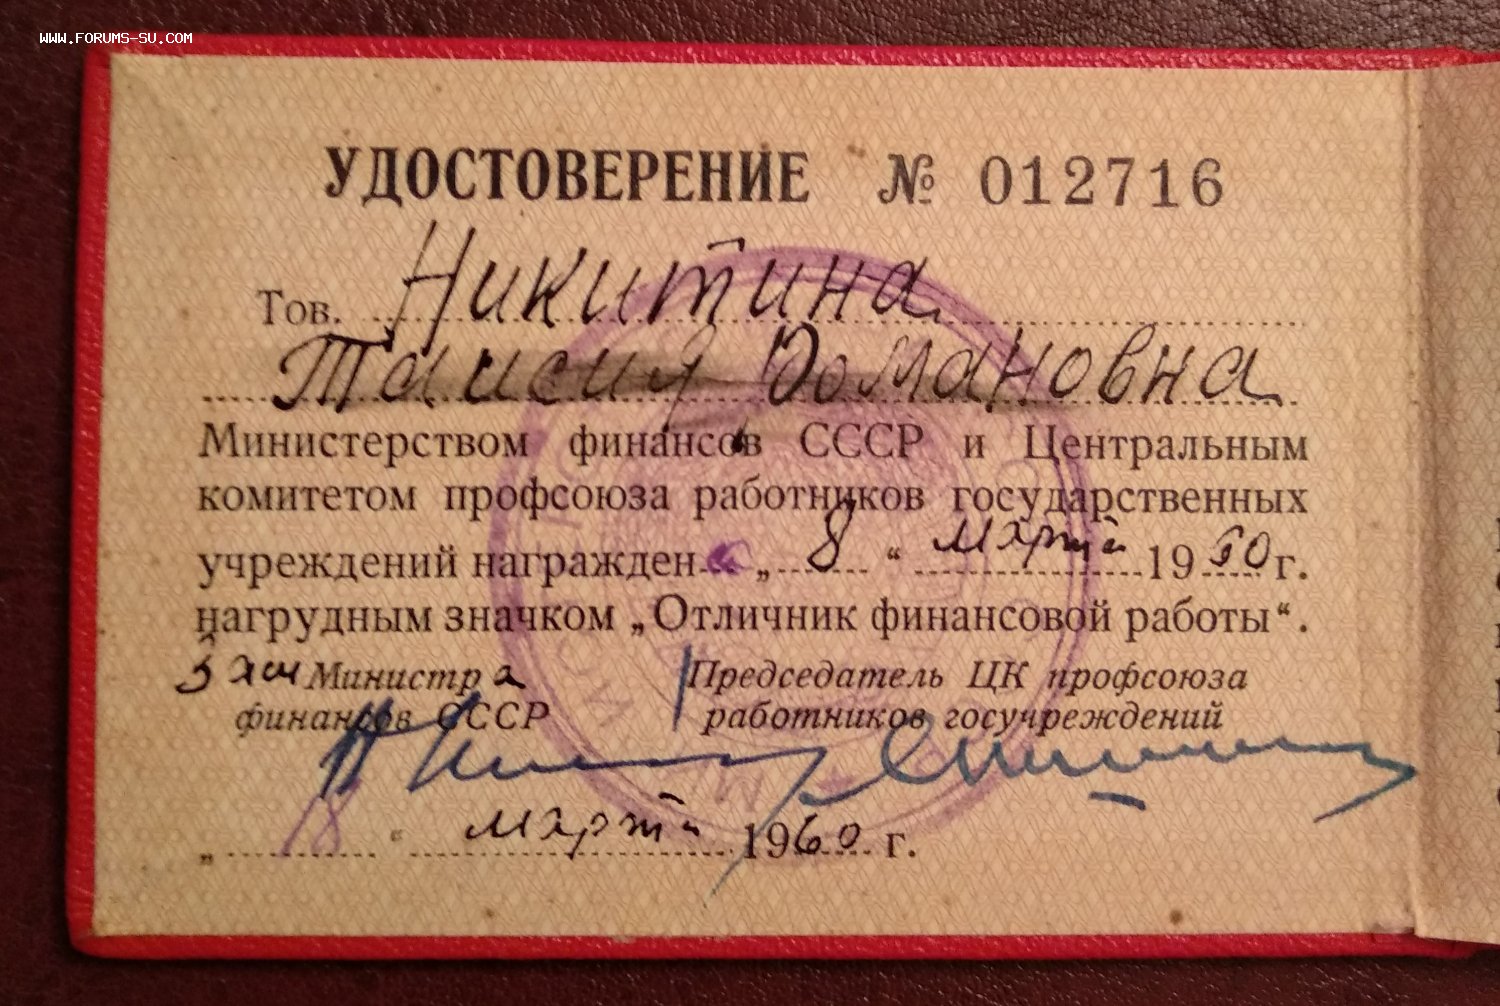 WWW.FORUMS-SU.COM
УДОСТОВЕРЕНИЕ № 012716
Тов. Никитина
Таисия Романовна
Министерством финансов СССР и Центральным
комитетом профсоюза работников государственных
учреждений награжден а „ 8 “ марта 1960 г.
нагрудным значком „Отличник финансовой работы“.
Зам Министра Председатель ЦК профсоюза
финансов СССР работников госучреждений
„ 18 “ марта 1960 г.